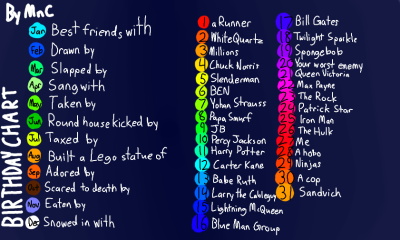 By MnC
BIRTHDAY CHART
Jan Best friends with
Feb Drawn by
Mar Slapped by
Apr Sang with
May Taken by
Jun Round house kicked by
Jul Taxed by
Aug Built a Lego statue of
Sep Adored by
Oct Scared to death by
Nov Eaten by
Dec Snowed in with
1 a Runner
2 White Quartz
3 Millions
4 Chuck Norris
5 Slenderman
6 BEN
7 Yohan Strauss
8 Papa Smurf
9 JB
10 Percy Jackson
11 Harry Potter
12 Carter Kane
13 Babe Ruth
14 Larry the Cableguy
15 Lightning McQueen
16 Blue Man Group
17 Bill Gates
18 Twilight Sparkle
19 Spongebob
20 Your worst enemy
21 Queen Victoria
22 Max Payne
23 The Rock
24 Patrick Star
25 Iron Man
26 The Hulk
27 Me
28 A hobo
29 Ninjas
30 A cop
31 Sandvich